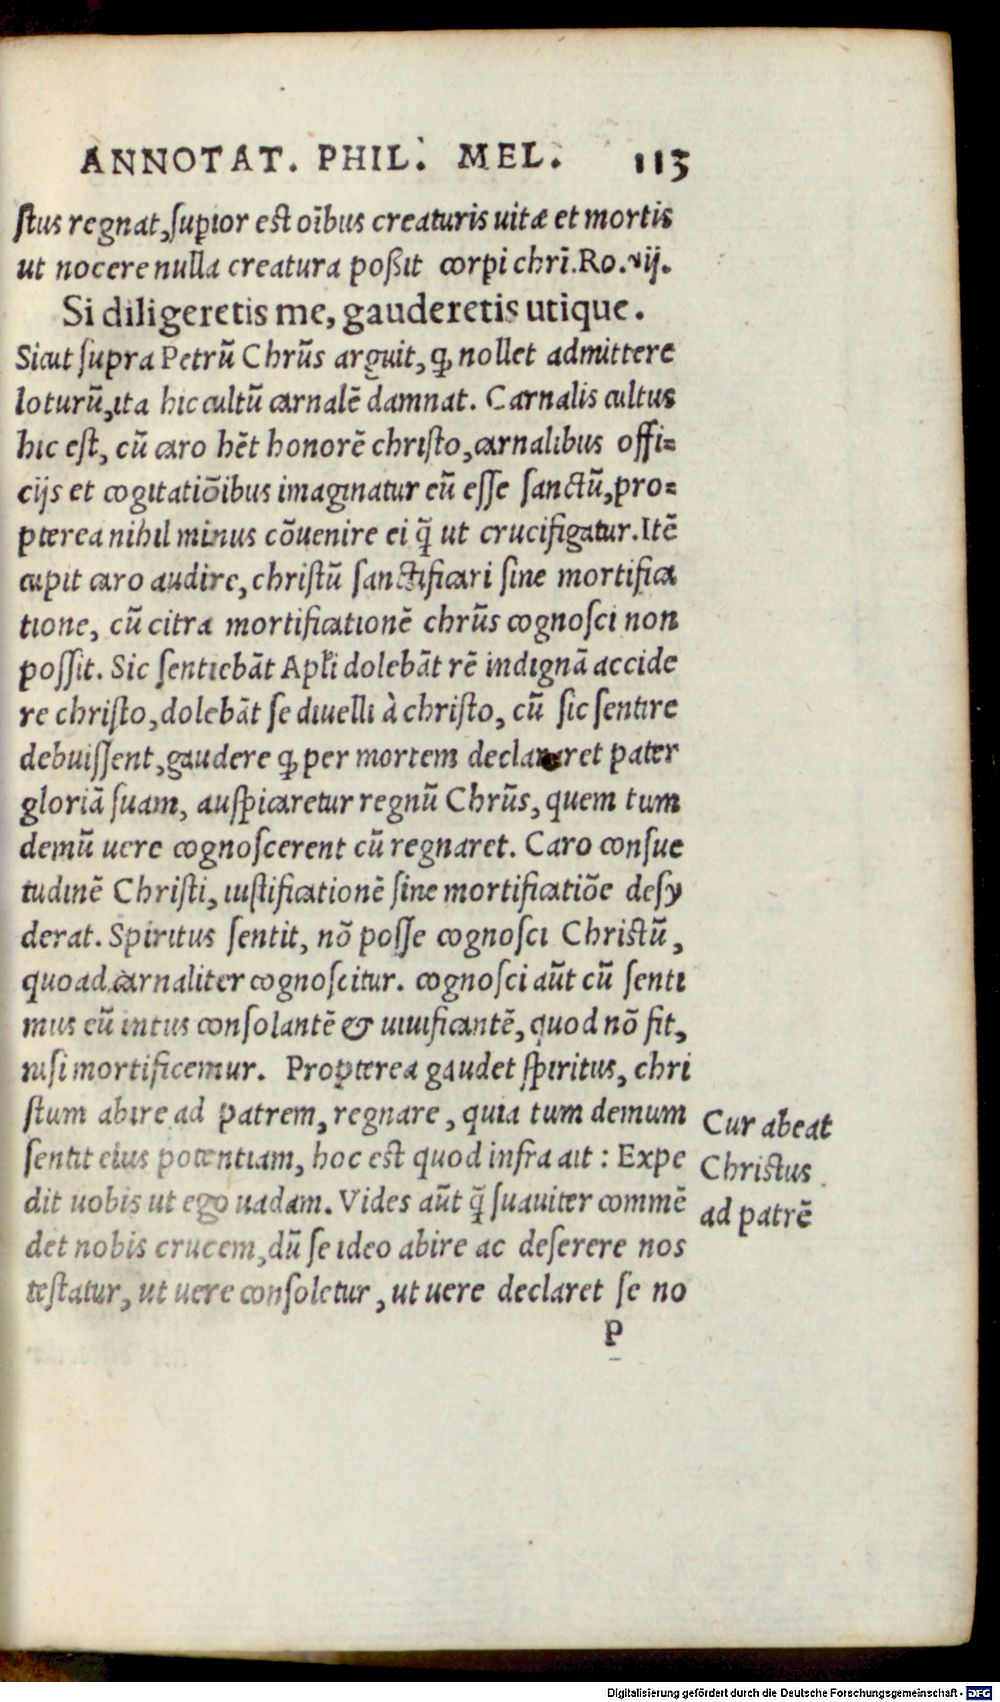 ANNOTAT. PHIL. MEL. 113
ſtus regnat, ſup̱ior eſt oĩbus creaturis uitæ et mortis
ut nocere nulla creatura poßit corp̱i chrĩ. Ro. vij.
Si diligeretis me, gauderetis utique.
Sicut ſupra Petrũ Chrũs arguit, ꝙ nollet admittere
loturũ, ita hic cultũ carnalẽ damnat. Carnalis cultus
hic eſt, cũ caro hẽt honorẽ chriſto, carnalibus offi=
cijs et cogitatiõibus imaginatur eũ eſſe ſanctũ, pro=
pterea nihil minus cõuenire ei q̃ ut crucifigatur. Itẽ
cupit caro audire, chriſtũ ſanctificari ſine mortifica
tione, cũ citra mortificationẽ chrũs cognoſci non
poſſit. Sic ſentiebãt Apł̃i dolebãt rẽ indignã accide
re chriſto, dolebãt ſe diuelli à chriſto, cũ ſic ſentire
debuiſſent, gaudere ꝙ per mortem declararet pater
gloriã ſuam, auſpicaretur regnũ Chrũs, quem tum
demũ uere cognoſcerent cũ regnaret. Caro conſue
tudinẽ Chriſti, iuſtificationẽ ſine mortificatiõe deſy
derat. Spiritus ſentit, nõ poſſe cognoſci Chriſtũ,
quoad carnaliter cognoſcitur. cognoſci aũt cũ ſenti
mus eũ intus conſolantẽ & uiuificantẽ, quod nõ fit,
niſi mortificemur. Propterea gaudet ſpiritus, chri
ſtum abire ad patrem, regnare, quia tum demum
ſentit eius potentiam, hoc eſt quod infra ait : Expe
dit uobis ut ego uadam. Vides aũt q̃ ſuauiter commẽ
det nobis crucem, dũ ſe ideo abire ac deſerere nos
teſtatur, ut uere conſoletur, ut uere declaret ſe no
P
Cur abeat
Chriſtus
ad patrẽ
Digitalisierung gefördert durch die Deutsche Forschungsgemeinschaft - DFG